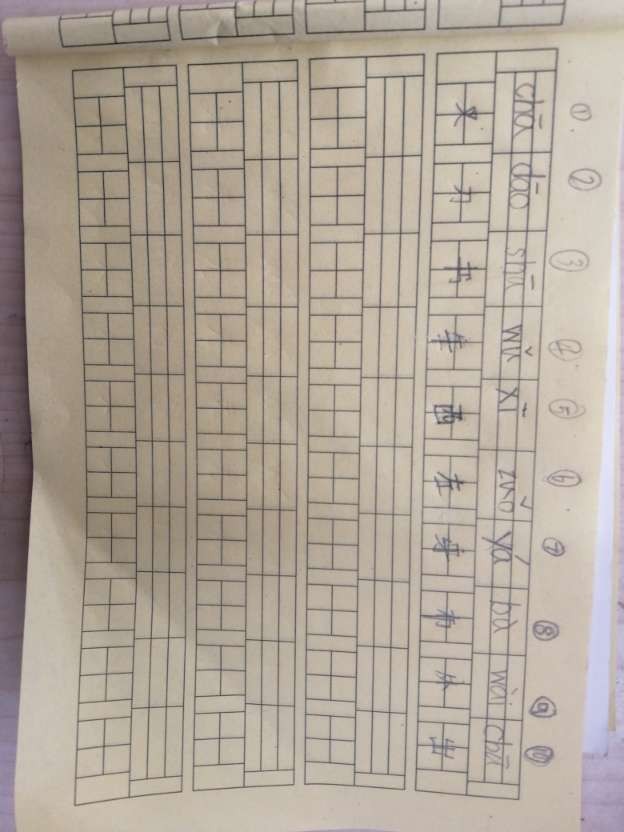 ① ② ③ ④ ⑤ ⑥ ⑦ ⑧ ⑨ ⑩
chā dāo shū wǔ xī zuǒ yá bù wài chū
叉 刀 书 午 西 左 牙 布 外 出